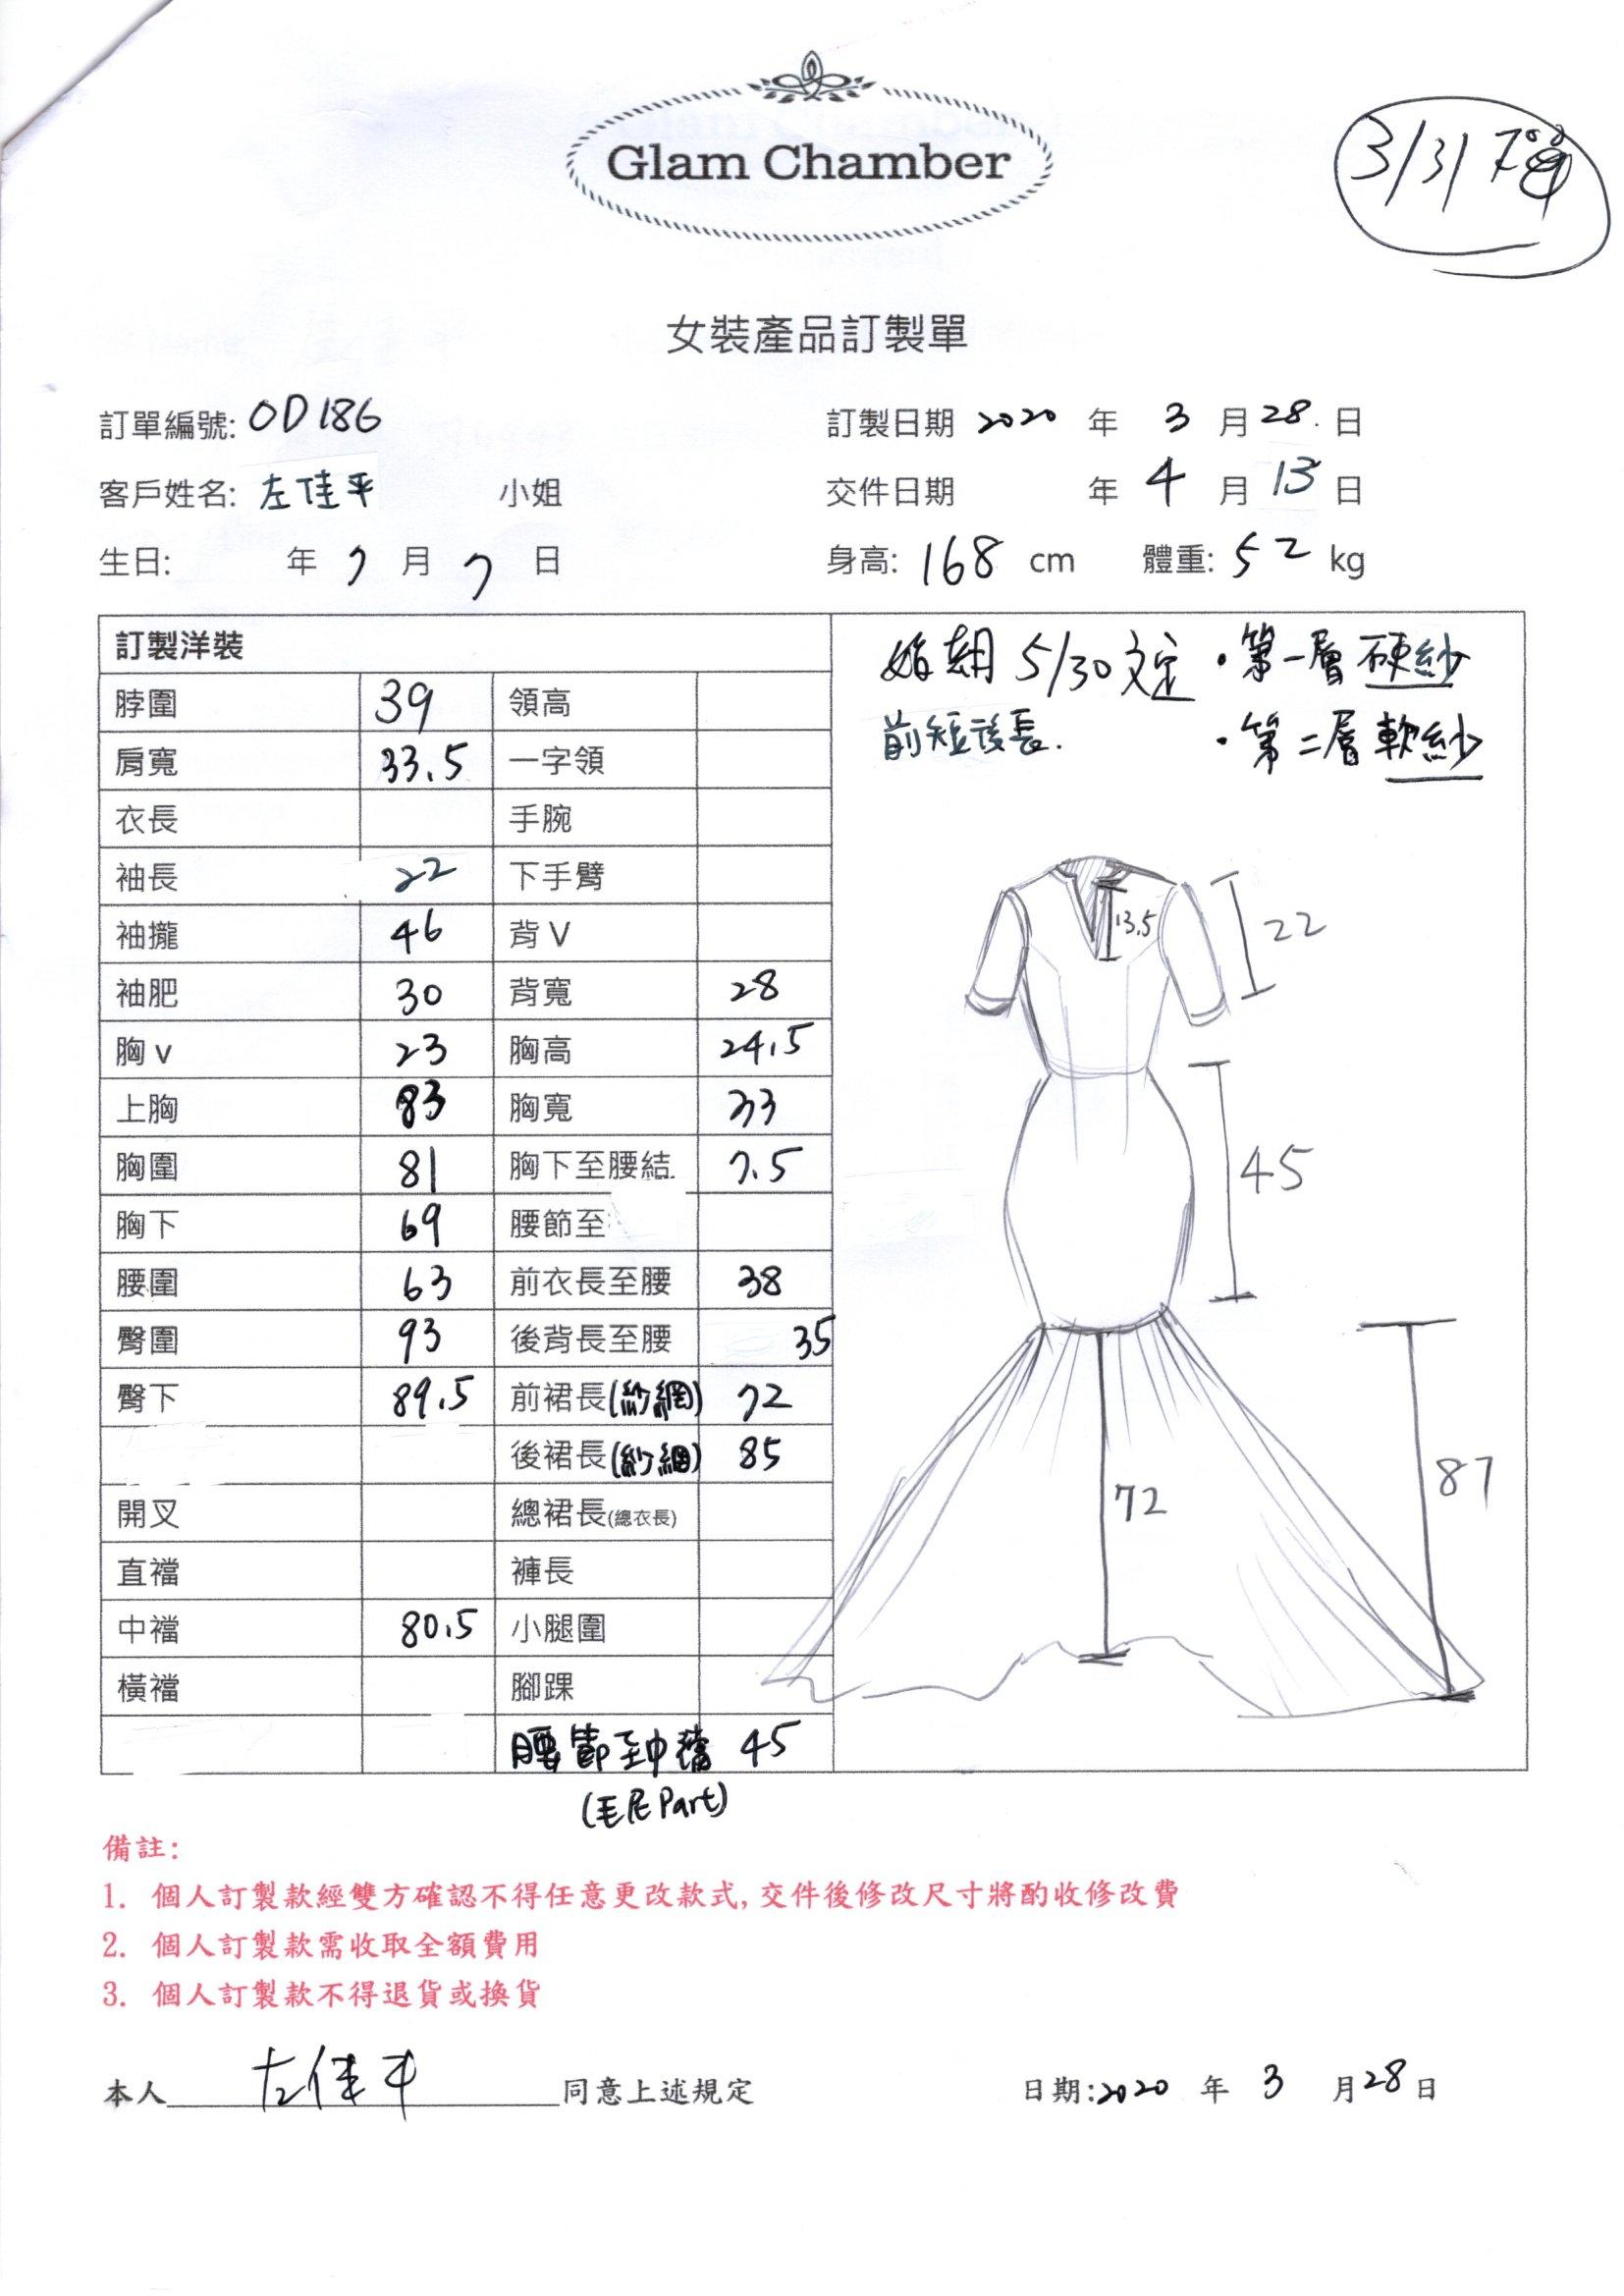 Glam Chamber
3/31
女裝產品訂製單
訂單編號: OD186 訂製日期 2020 年 3 月 28 日
客戶姓名: 左佳平 小姐 交件日期 年 4 月 13 日
生日: 年 7 月 7 日 身高: 168 cm 體重: 52 kg
訂製洋裝
脖圍 39 領高
肩寬 33.5 一字領
衣長 手腕
袖長 22 下手臂
袖攏 46 背 V
袖肥 30 背寬 28
胸 v 23 胸高 24.5
上胸 83 胸寬 33
胸圍 81 胸下至腰結 7.5
胸下 69 腰節至
腰圍 63 前衣長至腰 38
臀圍 93 後背長至腰 35
臀下 89.5 前裙長(紗網) 72
後裙長(紗網) 85
開叉 總裙長(總衣長)
直襠 褲長
中襠 80.5 小腿圍
橫襠 腳踝
腰節至中襠 45
(毛尼 Part)
婚期 5/30 文定
前短後長.
・第一層 硬紗
・第二層 軟紗
13.5
22
45
72
87
備註:
1. 個人訂製款經雙方確認不得任意更改款式, 交件後修改尺寸將酌收修改費
2. 個人訂製款需收取全額費用
3. 個人訂製款不得退貨或換貨
本人 左佳平 同意上述規定 日期: 2020 年 3 月 28 日